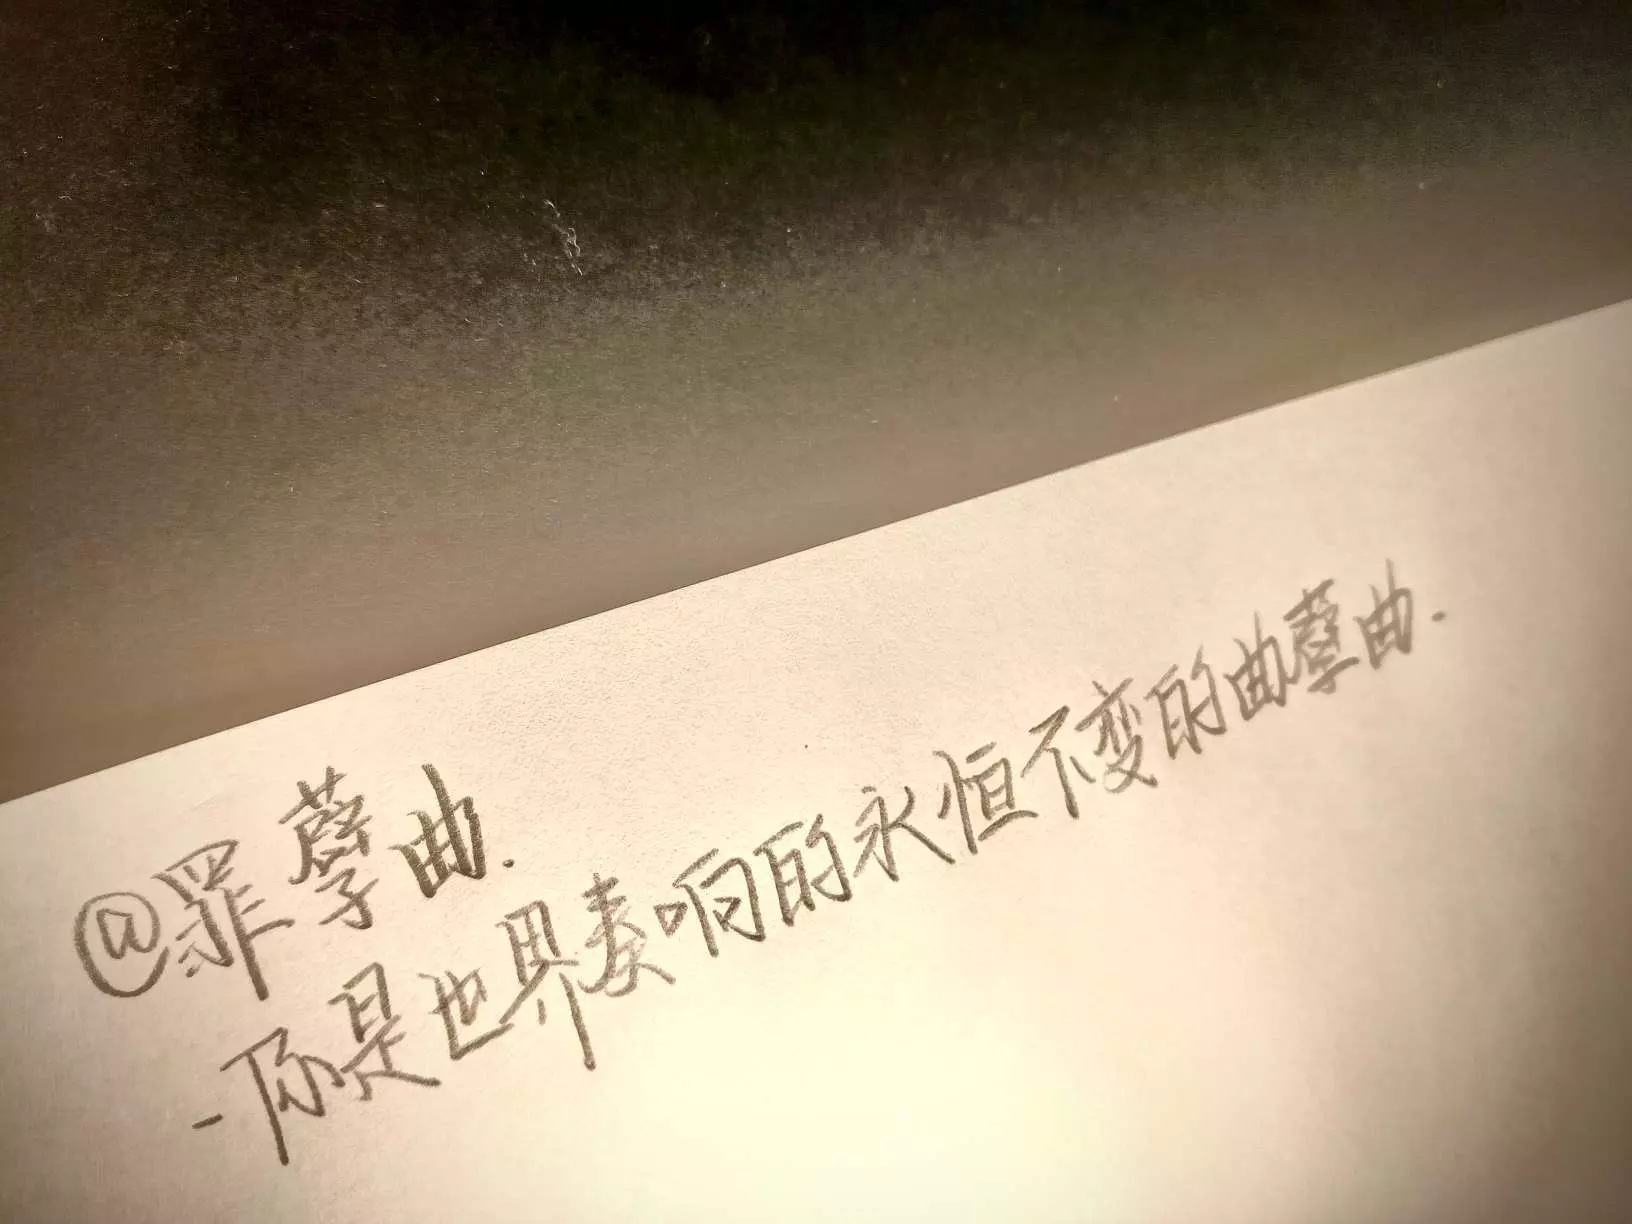 @罪孽曲.
-你是世界奏响的永恒不变的曲孽曲.